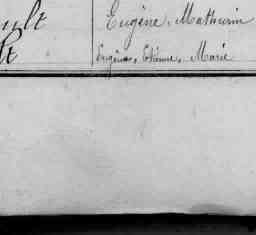 ault Eugène, Mathurin
lt Eugène, Etienne, Marie